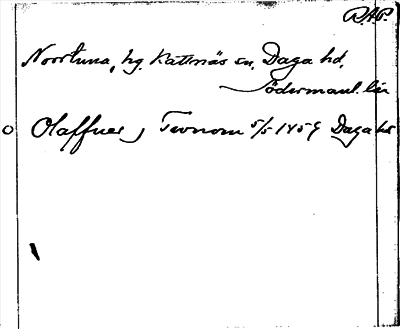 R.A.P.
Norrtuna, hg. Kattnäs sn, Daga hd,
Södermanl. län
Olaffues j Twnom 5/5 1459 Daga hd